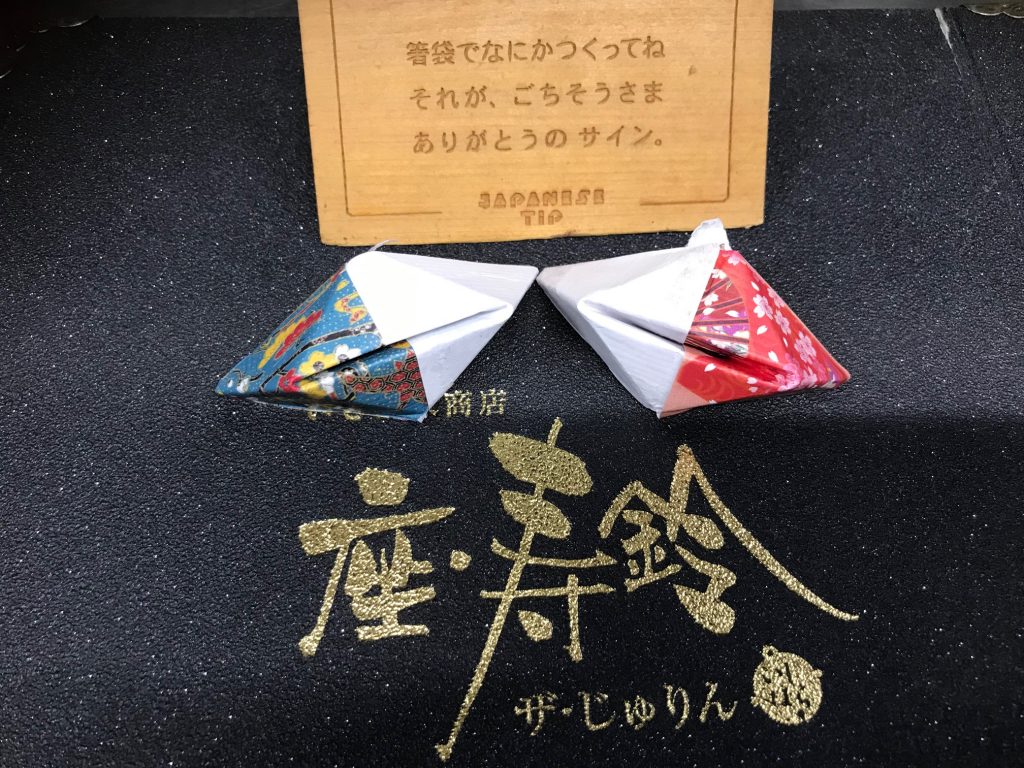 箸袋でなにかつくってね
それが、ごちそうさま
ありがとうの サイン。
JAPANESE
TIP
商店
座・寿鈴
ザ・じゅりん